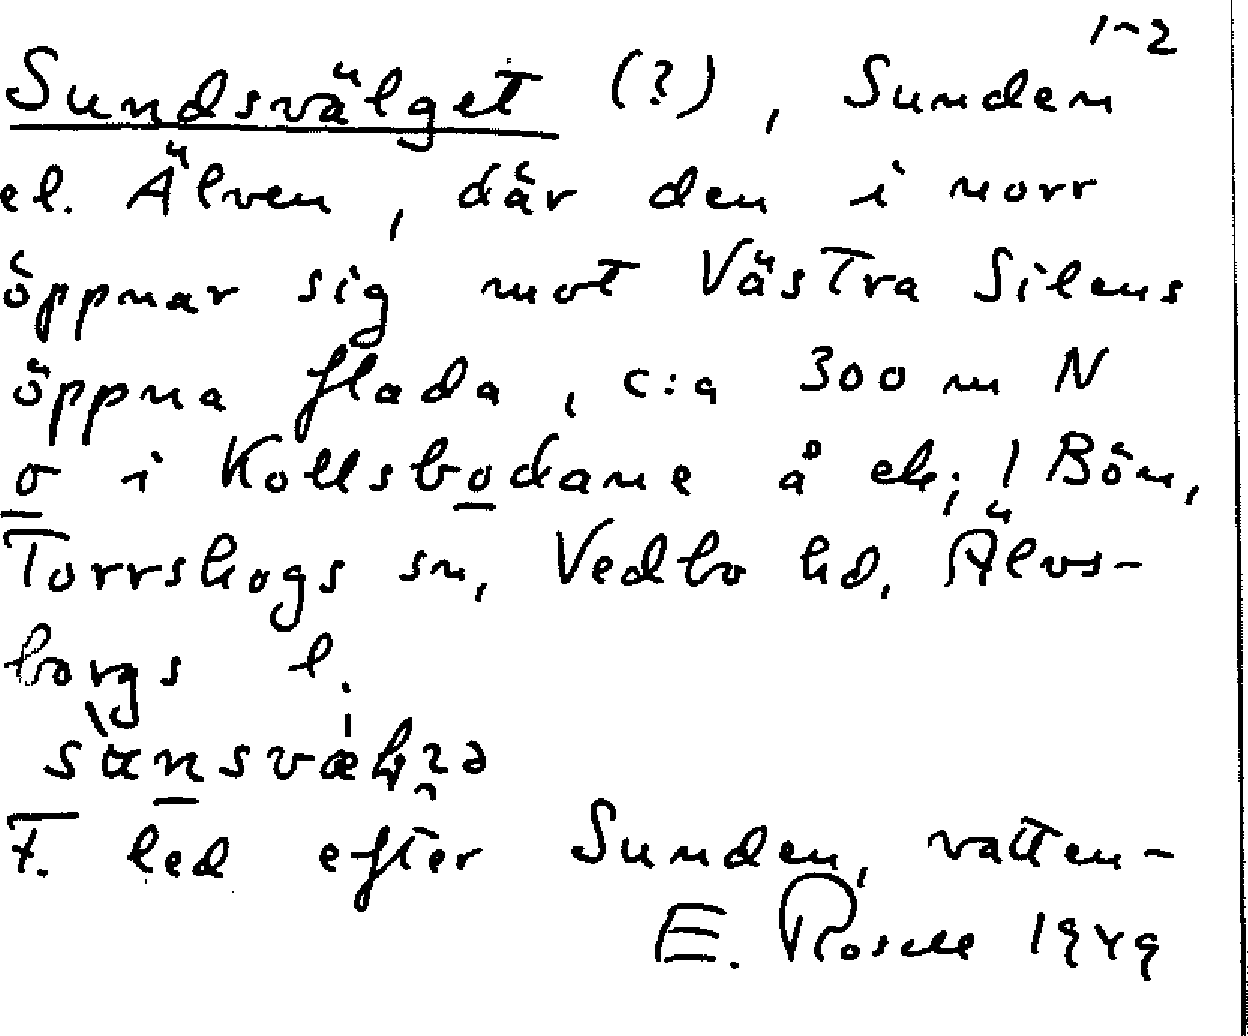 1-2
Sundsvälget (?), Sunden
el. Älven, där den i norr
öppnar sig mot Västra Silens
öppna flada, c:a 300 m N
o i Kollsbodane å ek; l Bön,
Torrskogs sn, Vedbo hd, Älvs-
borgs l.
F. led efter Sunden, vatten-
E. Rosell 1949